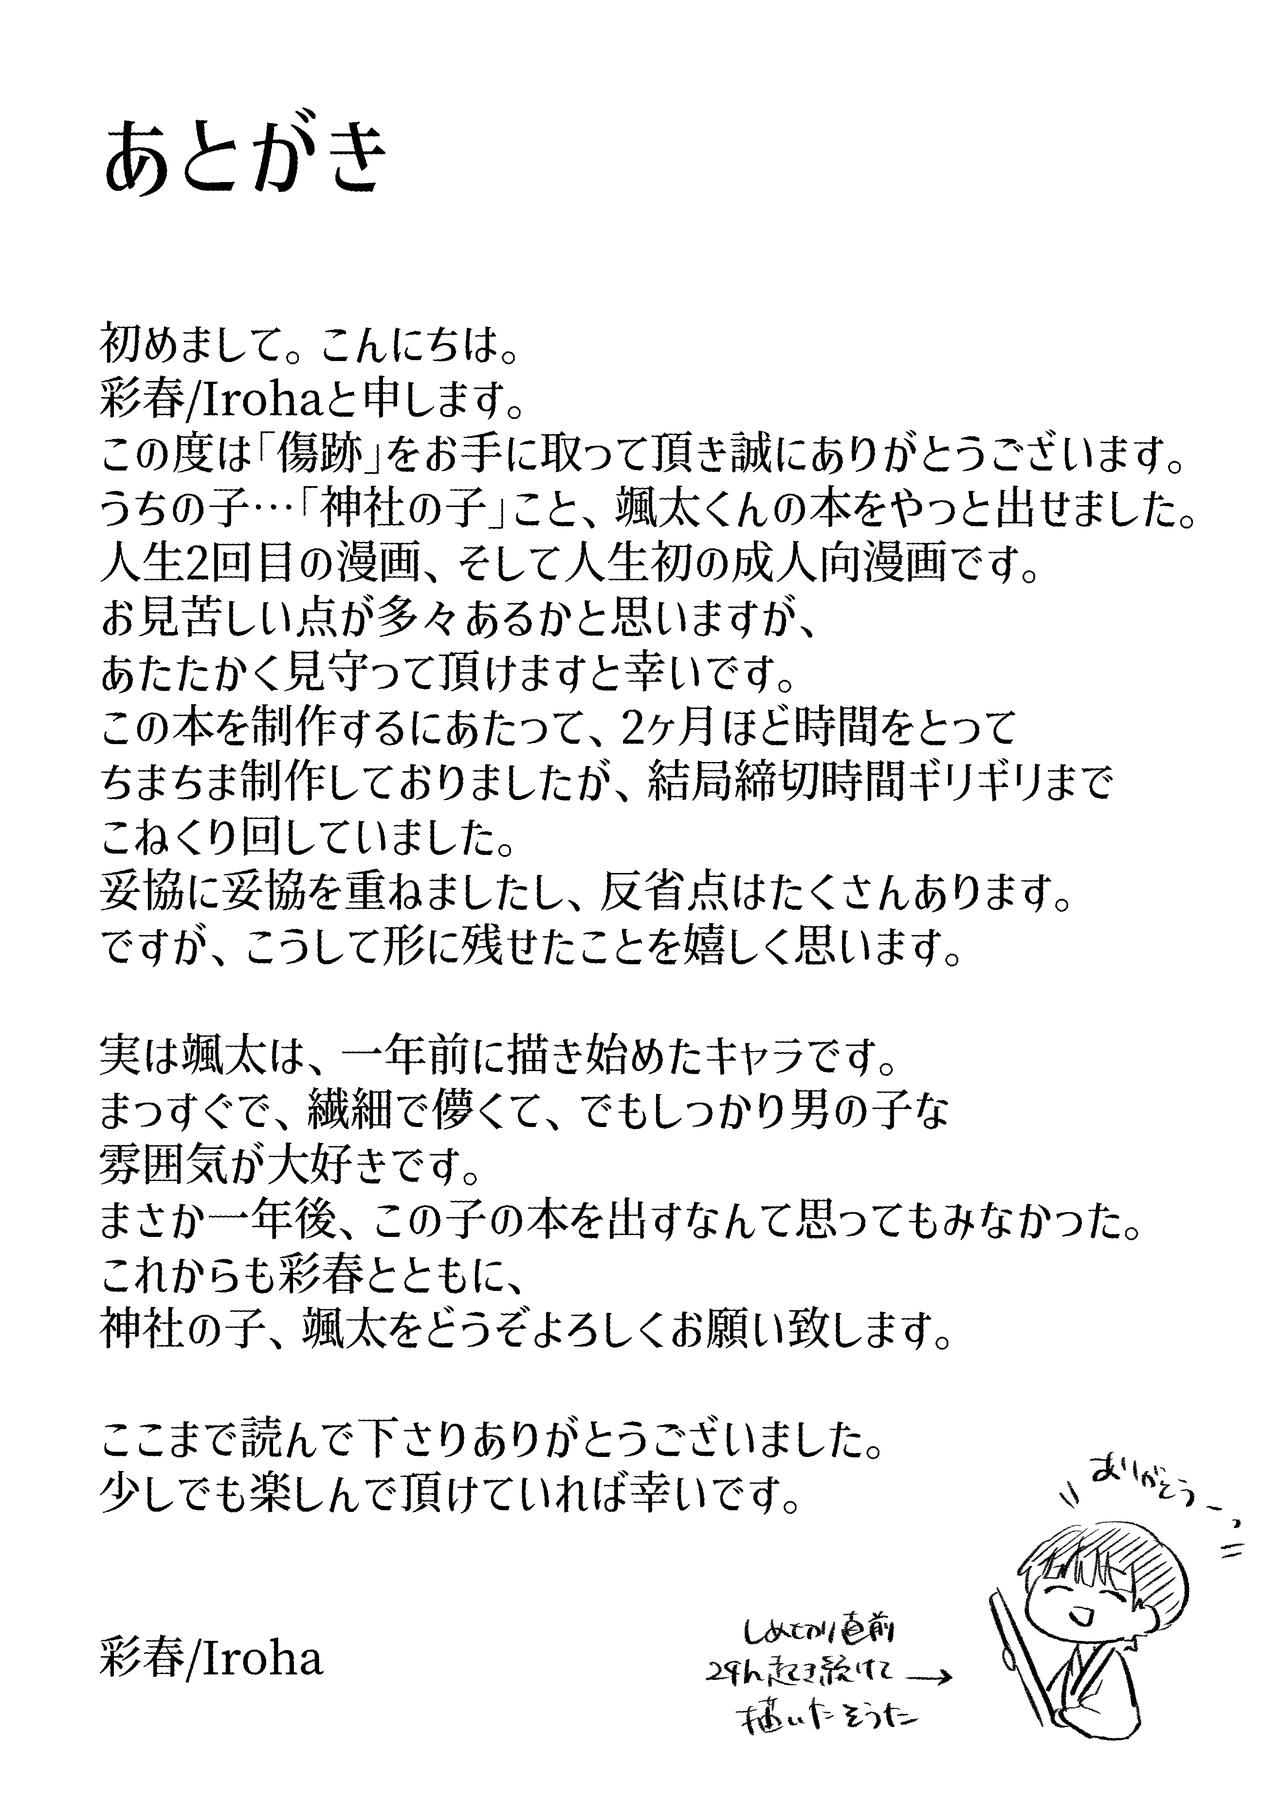 あとがき
初めまして。こんにちは。
彩春/Irohaと申します。
この度は「傷跡」をお手に取って頂き誠にありがとうございます。
うちの子…「神社の子」こと、颯太くんの本をやっと出せました。
人生2回目の漫画、そして人生初の成人向漫画です。
お見苦しい点が多々あるかと思いますが、
あたたかく見守って頂けますと幸いです。
この本を制作するにあたって、2ヶ月ほど時間をとって
ちまちま制作しておりましたが、結局締切時間ギリギリまで
こねくり回していました。
妥協に妥協を重ねましたし、反省点はたくさんあります。
ですが、こうして形に残せたことを嬉しく思います。
実は颯太は、一年前に描き始めたキャラです。
まっすぐで、繊細で儚くて、でもしっかり男の子な
雰囲気が大好きです。
まさか一年後、この子の本を出すなんて思ってもみなかった。
これからも彩春とともに、
神社の子、颯太をどうぞよろしくお願い致します。
ここまで読んで下さりありがとうございました。
少しでも楽しんで頂けていれば幸いです。
ありがとうー
彩春/Iroha
しめきり直前
24h起き続けて→
描いたそうた